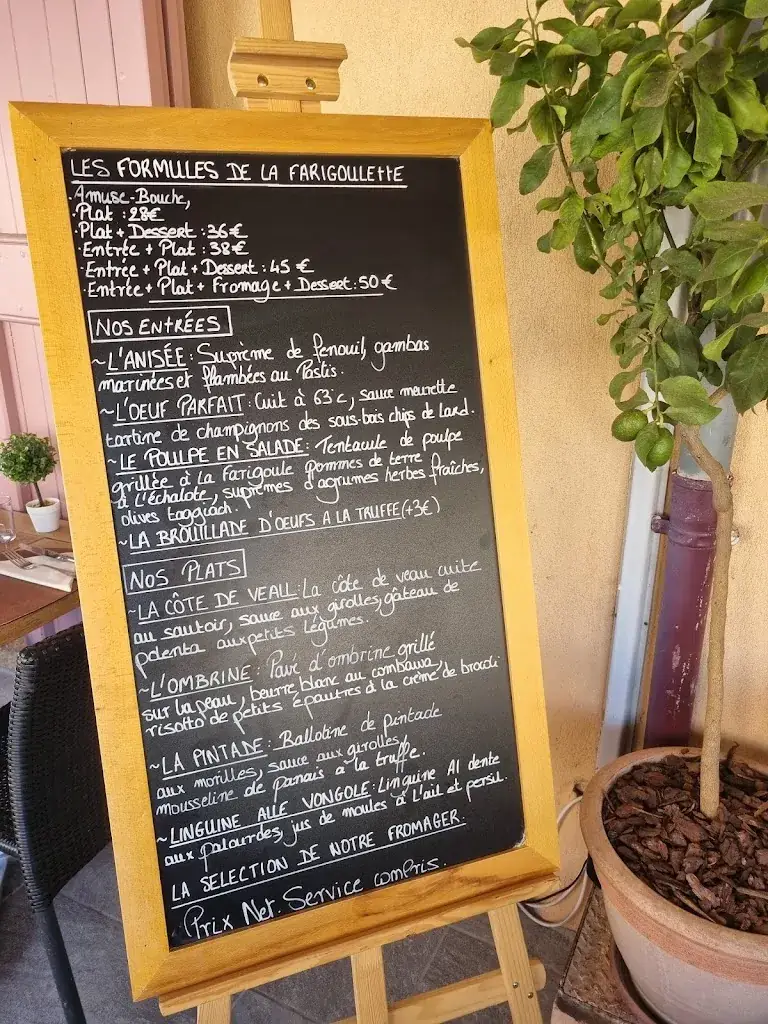 LES FORMULES DE LA FARIGOULETTE
· Amuse-Bouche,
· Plat : 28€
· Plat + Dessert : 36€
· Entrée + Plat : 38€
· Entrée + Plat + Dessert : 45 €
· Entrée + Plat + Fromage + Dessert : 50 €
NOS ENTRÉES
~ L'ANISÉE : Suprème de fenouil, gambas
marinées et flambées au Pastis.
~ L'OEUF PARFAIT : Cuit à 63°c, sauce meurette
tartine de champignons des sous-bois chips de lard.
~ LE POULPE EN SALADE : Tentacule de poulpe
grillée à la Farigoule pommes de terre
à l'échalote, suprèmes d'agrumes herbes fraîches,
olives taggiach.
~ LA BROUILLADE D'OEUFS A LA TRUFFE (+3€)
NOS PLATS
~ LA CÔTE DE VEAU : La côte de veau cuite
au sautoir, sauce aux girolles, gâteau de
polenta aux petits légumes.
~ L'OMBRINE : Pavé d'ombrine grillé
sur la peau, beurre blanc au combawa,
risotto de petits épautres à la crème de brocoli
~ LA PINTADE : Ballotine de pintade
aux morilles, sauce aux girolles,
mousseline de panais à la truffe.
~ LINGUINE ALLE VONGOLE : Linguine Al dente
aux palourdes, jus de moules à l'ail et persil.
LA SELECTION DE NOTRE FROMAGER.
Prix Net. Service compris.